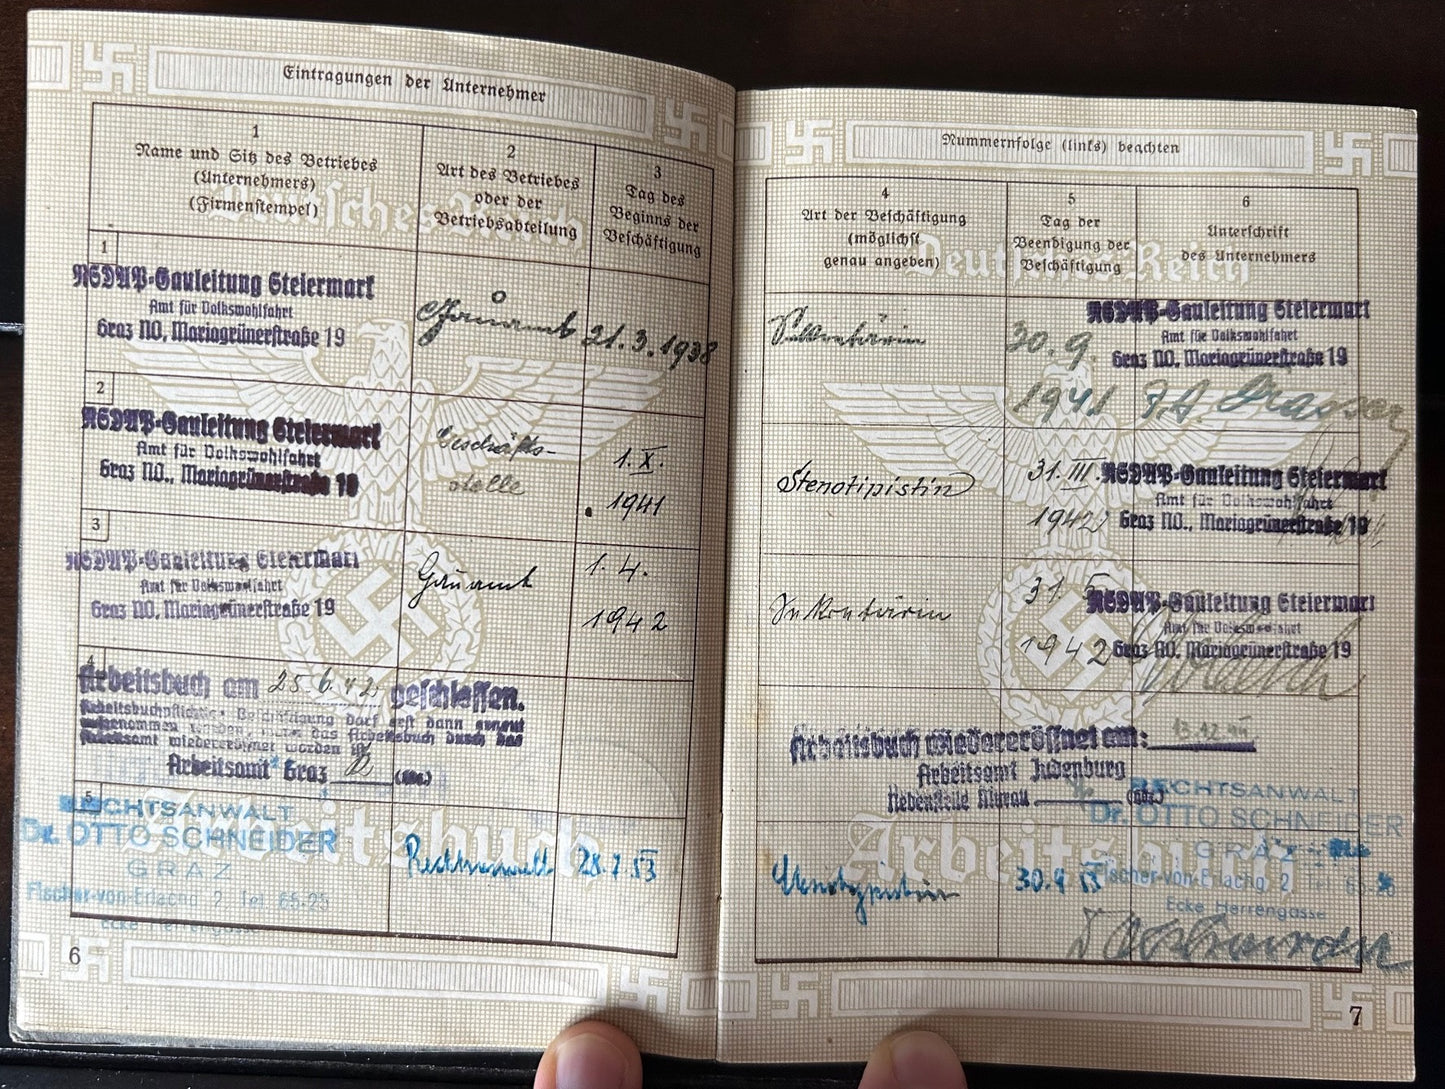 Eintragungen der Unternehmer
1
Name und Sitz des Betriebes
(Unternehmers)
(Firmenstempel)
2
Art des Betriebes
oder der
Betriebsabteilung
3
Tag des
Beginns der
Beschäftigung
1
NSDAP-Gauleitung Steiermark
Amt für Volkswohlfahrt
Graz NO, Mariagrünerstraße 19
Gauamt
21.3.1938
2
NSDAP-Gauleitung Steiermark
Amt für Volkswohlfahrt
Graz NO., Mariagrünerstraße 19
Geschäfts-
stelle
1.X.
1941
3
NSDAP-Gauleitung Steiermark
Amt für Volkswohlfahrt
Graz NO, Mariagrünerstraße 19
Gauamt
1.4.
1942
4
Arbeitsbuch am 25.6.42 geschlossen.
Arbeitsbuchpflichtige Beschäftigung darf erst dann erneut
aufgenommen werden, wenn das Arbeitsbuch durch das
Arbeitsamt wiedereröffnet worden ist
Arbeitsamt Graz
5
RECHTSANWALT
Dr. OTTO SCHNEIDER
GRAZ
Fischer-von-Erlachg. 2, Tel. 65-25
Ecke Herrengasse
Rechtsanwalt
28.7.53
Deutsches Reich
Arbeitsbuch
6
Nummernfolge (links) beachten
4
Art der Beschäftigung
(möglichst
genau angeben)
5
Tag der
Beendigung der
Beschäftigung
6
Unterschrift
des Unternehmers
Sekretärin
30.9.
1941
NSDAP-Gauleitung Steiermark
Amt für Volkswohlfahrt
Graz NO, Mariagrünerstraße 19
Stenotipistin
31.III.
1942
NSDAP-Gauleitung Steiermark
Amt für Volkswohlfahrt
Graz NO., Mariagrünerstraße 19
Sekretärin
31.5
1942
NSDAP-Gauleitung Steiermark
Amt für Volkswohlfahrt
Graz NO, Mariagrünerstraße 19
Arbeitsbuch wiedereröffnet am:
Arbeitsamt Judenburg
Nebenstelle Murau
RECHTSANWALT
Dr. OTTO SCHNEIDER
GRAZ
Fischer-von-Erlachg. 2, Tel. 65-25
Ecke Herrengasse
Stenotypistin
30.9.53
Deutsches Reich
Arbeitsbuch
7